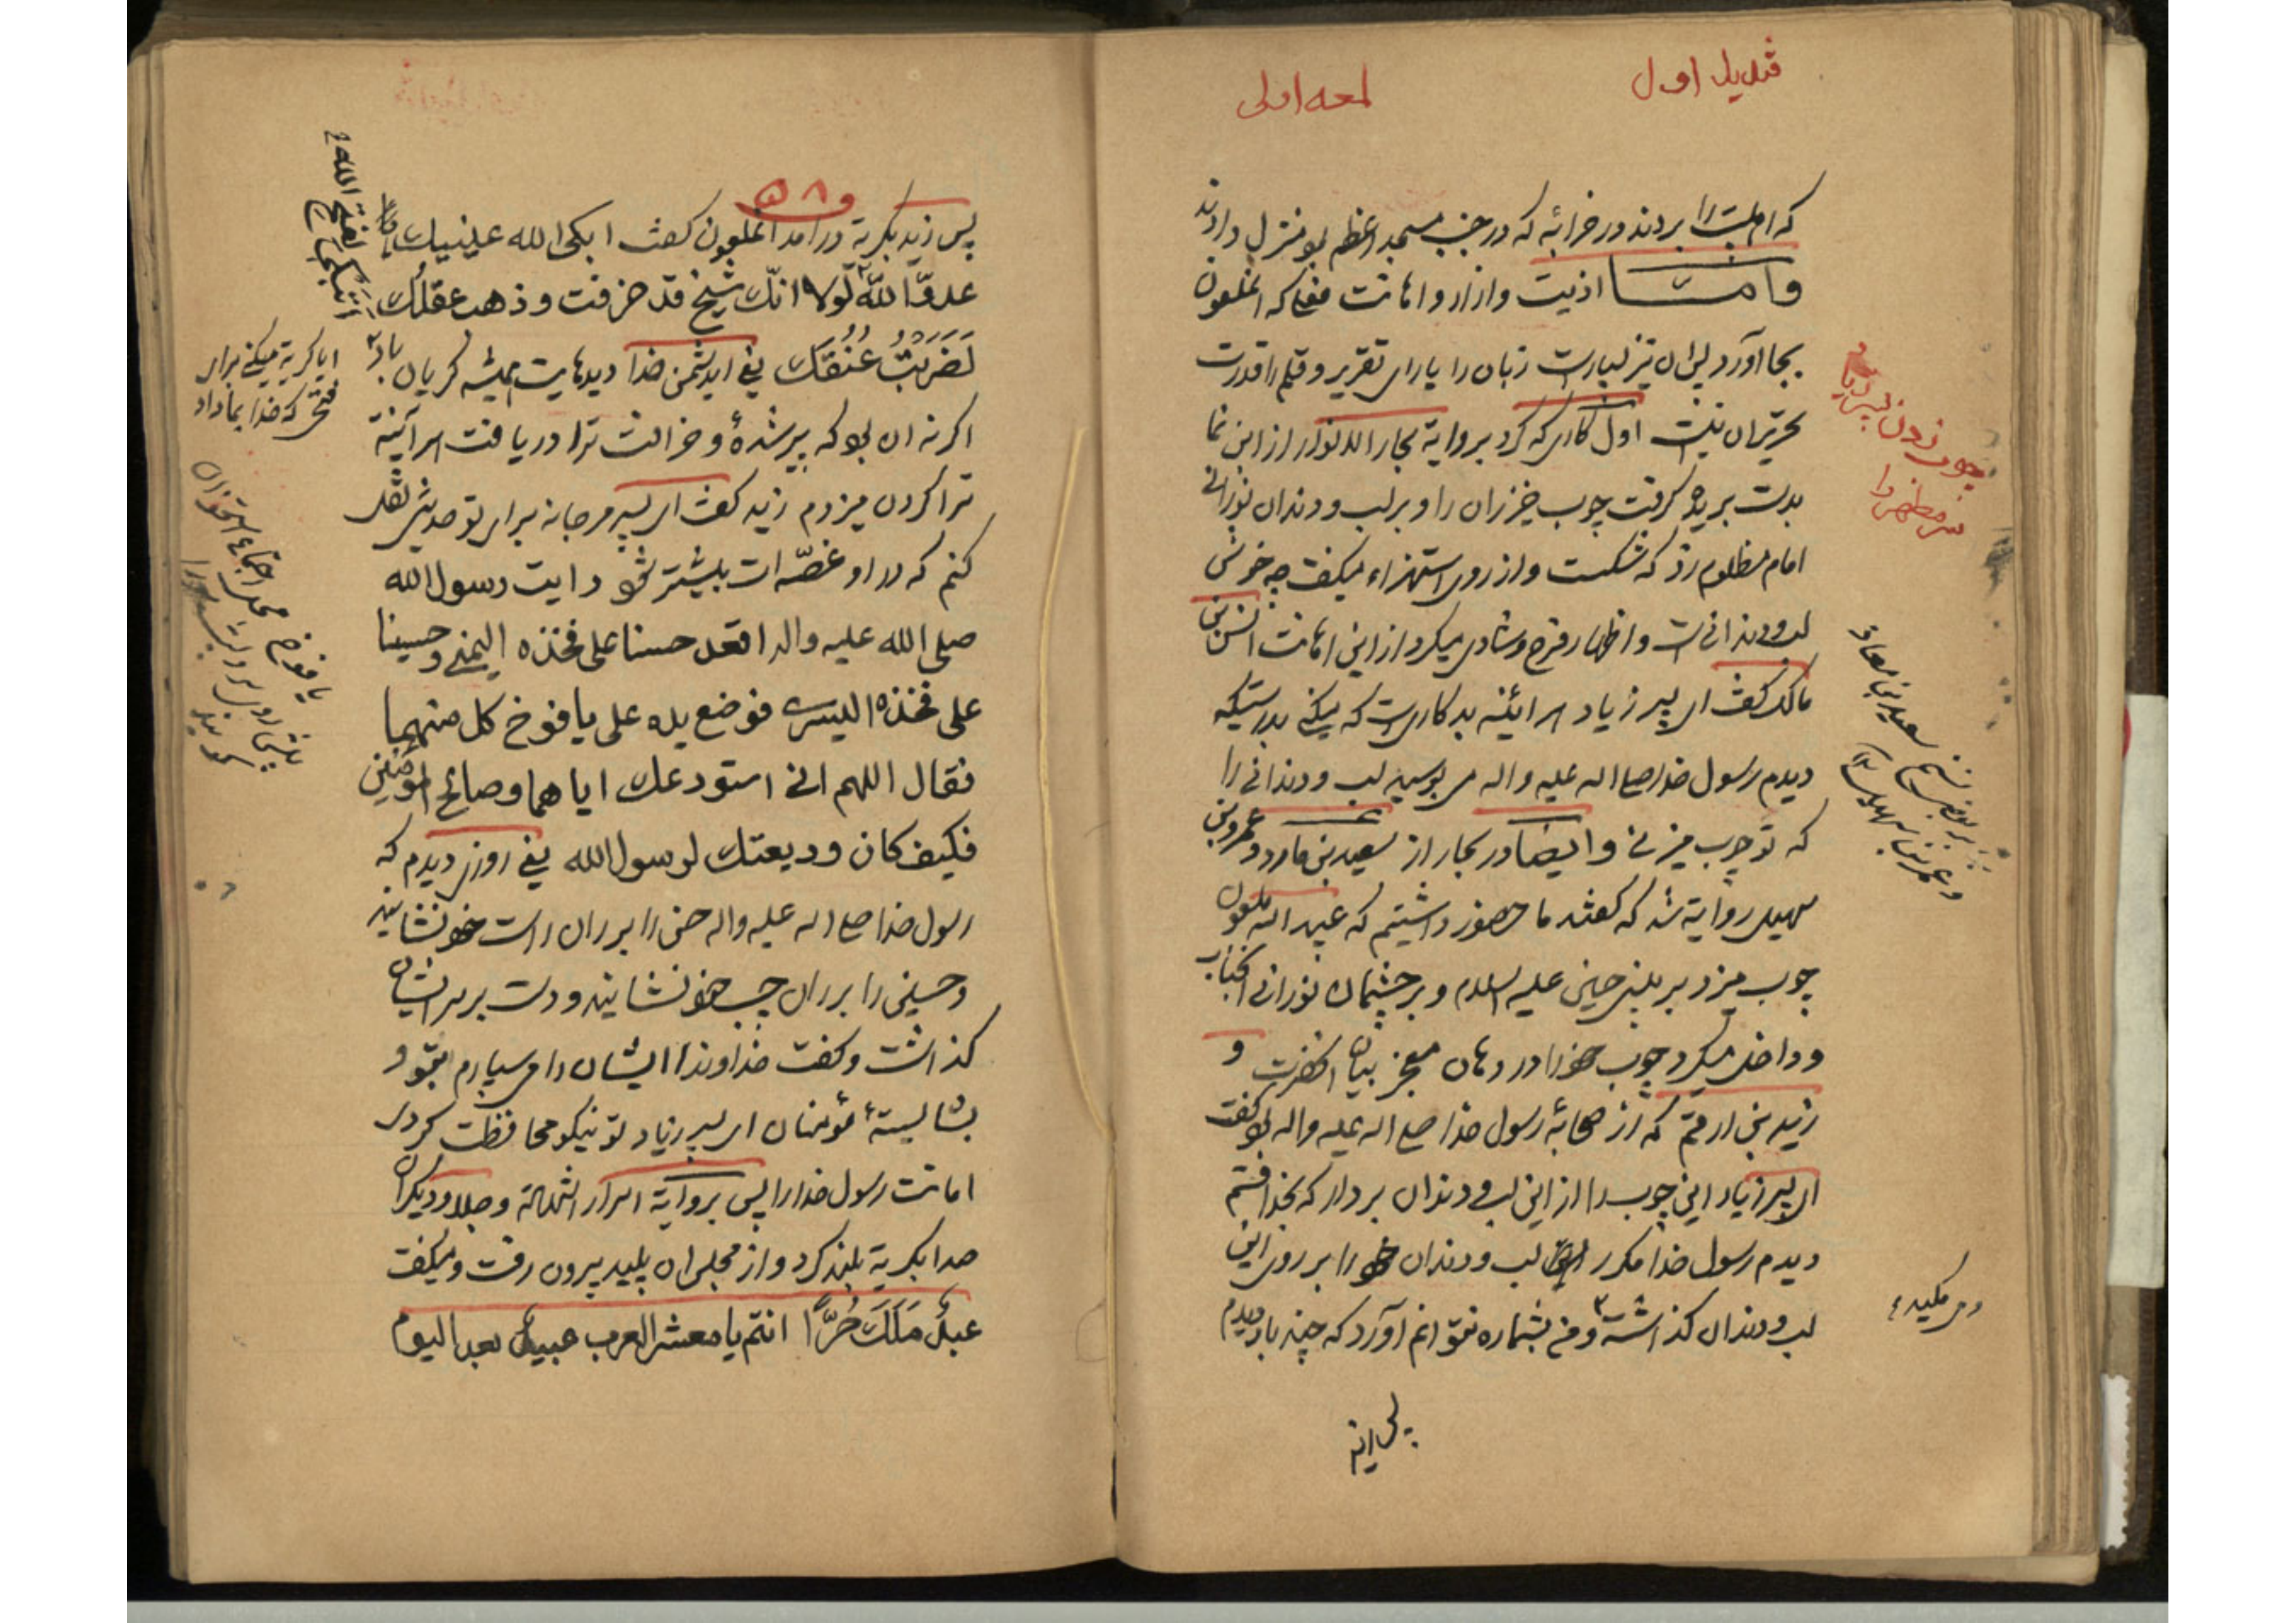 قندیل اول
لمعه اولی
که اهلبیت را بردند در خرابه که در جنب مسجد اعظم بود منزل دادند
و اما اذیت و ازار و اهانت که انملعون
بجا آورد بسیارست زبان را یارای تقریر و قلم را قدرت
تحریر ان نیست اول کاری که کرد بروایة بحار الانوار از ابن نما
بدست پرید گرفت چوب خیزران را و بر لب و دندان نورانی
امام مظلوم زد که شکست و از روی استهزاء میگفت چه خوش
لب و دندانی است و اظهار فرح و شادی میکرد از این اهانت انس بن
مالک گفت ای پسر زیاد هر ائینه بد کاریست که میکنی بدرستیکه
دیدم رسول خدا صلی اله علیه و اله می بوسید لب و دندانی را
که تو چوب میزنی و ایضا در بحار از سعید بن معاذ و عمرو بن
سهیل روایة شده که گفتند ما حضور داشتیم که عبید اله ملعون
چوب میزد بر بینی حسین علیه السلام و بر چشمان نورانی انجناب
و داخل میکرد چوب خود را در دهان معجز بیان انحضرت و
زید بن ارقم که از صحابه رسول خدا صلی اله علیه و اله بود گفت
ای پسر زیاد این چوب را از این لب و دندان بردار که بخدا قسم
دیدم رسول خدا مکرر لب و دندان خود را بر روی این
لب و دندان گذاشته و من بشماره نتوانم آورد که چند بار دیدم
چوب زدن پسر زیاد
سر مطهر را
سعید بن معاذ
و عمر بن سهل
و می مکید
پس زید بگریه در امد انملعون گفت ابکی الله عینیک یا
عدو الله لولا انک شیخ قد خرفت و ذهب عقلک
لَضَرَبْتُ عُنُقَكَ یعنی ای دشمن خدا دیدهایت همیشه گریان باد
اگر نه ان بود که پیر شدهٔ و خرافت ترا دریافت هر آئینه
ترا گردن میزدم زید گفت ای پسر مرجانه برای تو حدیثی نقل
کنم که در او غصّه ات بیشتر شود رایت رسول الله
صلی الله علیه و اله اقعد حسنا علی فخذه الیمنی و حسینا
علی فخذه الیسری فوضع یده علی یافوخ کل منهما
فقال اللهم انی استودعک ایاهما و صالح المؤمنین
فکیف کان ودیعتک لرسول الله یعنی روزی دیدم که
رسول خدا صلی اله علیه و اله حسن را بر ران راست خود نشانید
و حسین را بر ران چپ خود نشانید و دست بر سر ایشان
گذاشت و گفت خداوندا ایشان را می سپارم بتو و
بشایستهٔ مؤمنان ای پسر زیاد تو نیکو محافظت کردی
امانت رسول خدا را پس بروایة اسرار الشهادة و جلاء و دیگران
صدا بگریة بلند کرد و از مجلس ان پلید بیرون رفت و میگفت
عبدٌ مَلَكَ حُرًّا انتم یا معشر العرب عبید بعد الیوم
اتبکی لفتح الله
ایا گریة میکنی برای
فتحی که خدا بما داد
یافوخ محل اجتماع استخوان